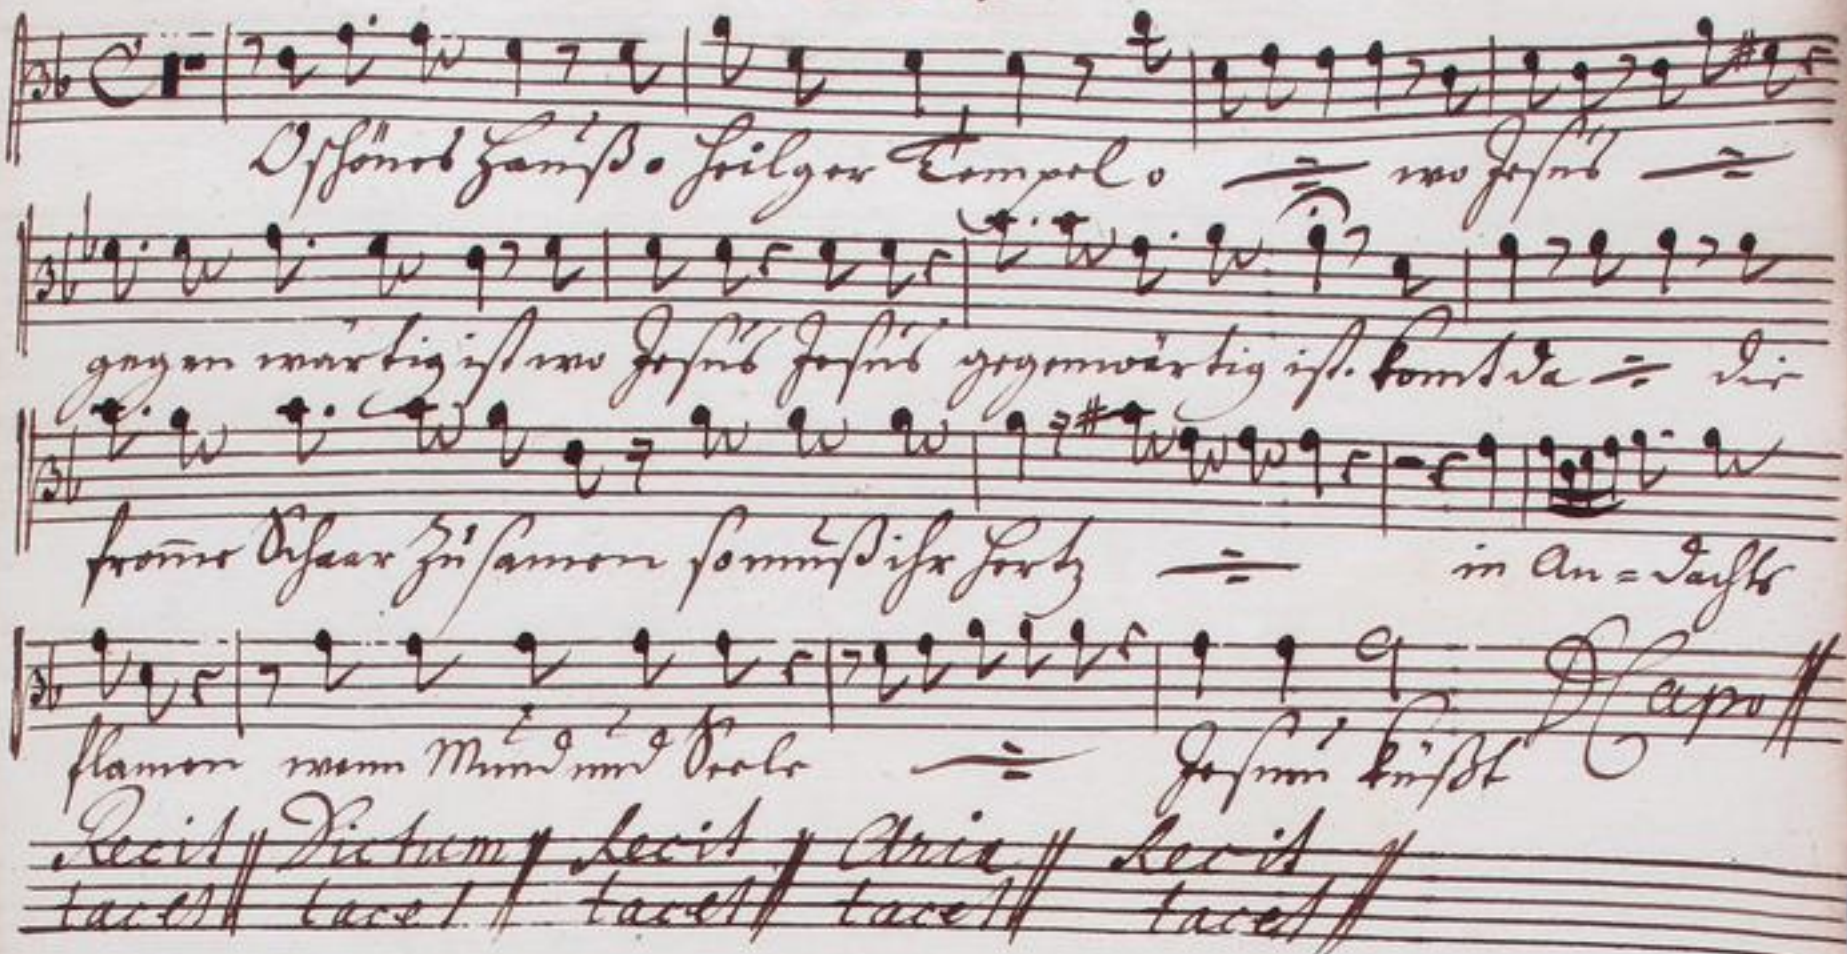 O schönes Hauß o heilger Tempel o wo Jesus
gegen wärtig ist wo Jesus Jesus gegenwärtig ist. komt da die
from̅e Schaar zusamen so muß ihr Hertz in An=dachts
flamen wenn Mund und Seele Jesum küßt D Capo
Recit Dictum Recit Aria Recit
tacet tacet tacet tacet tacet